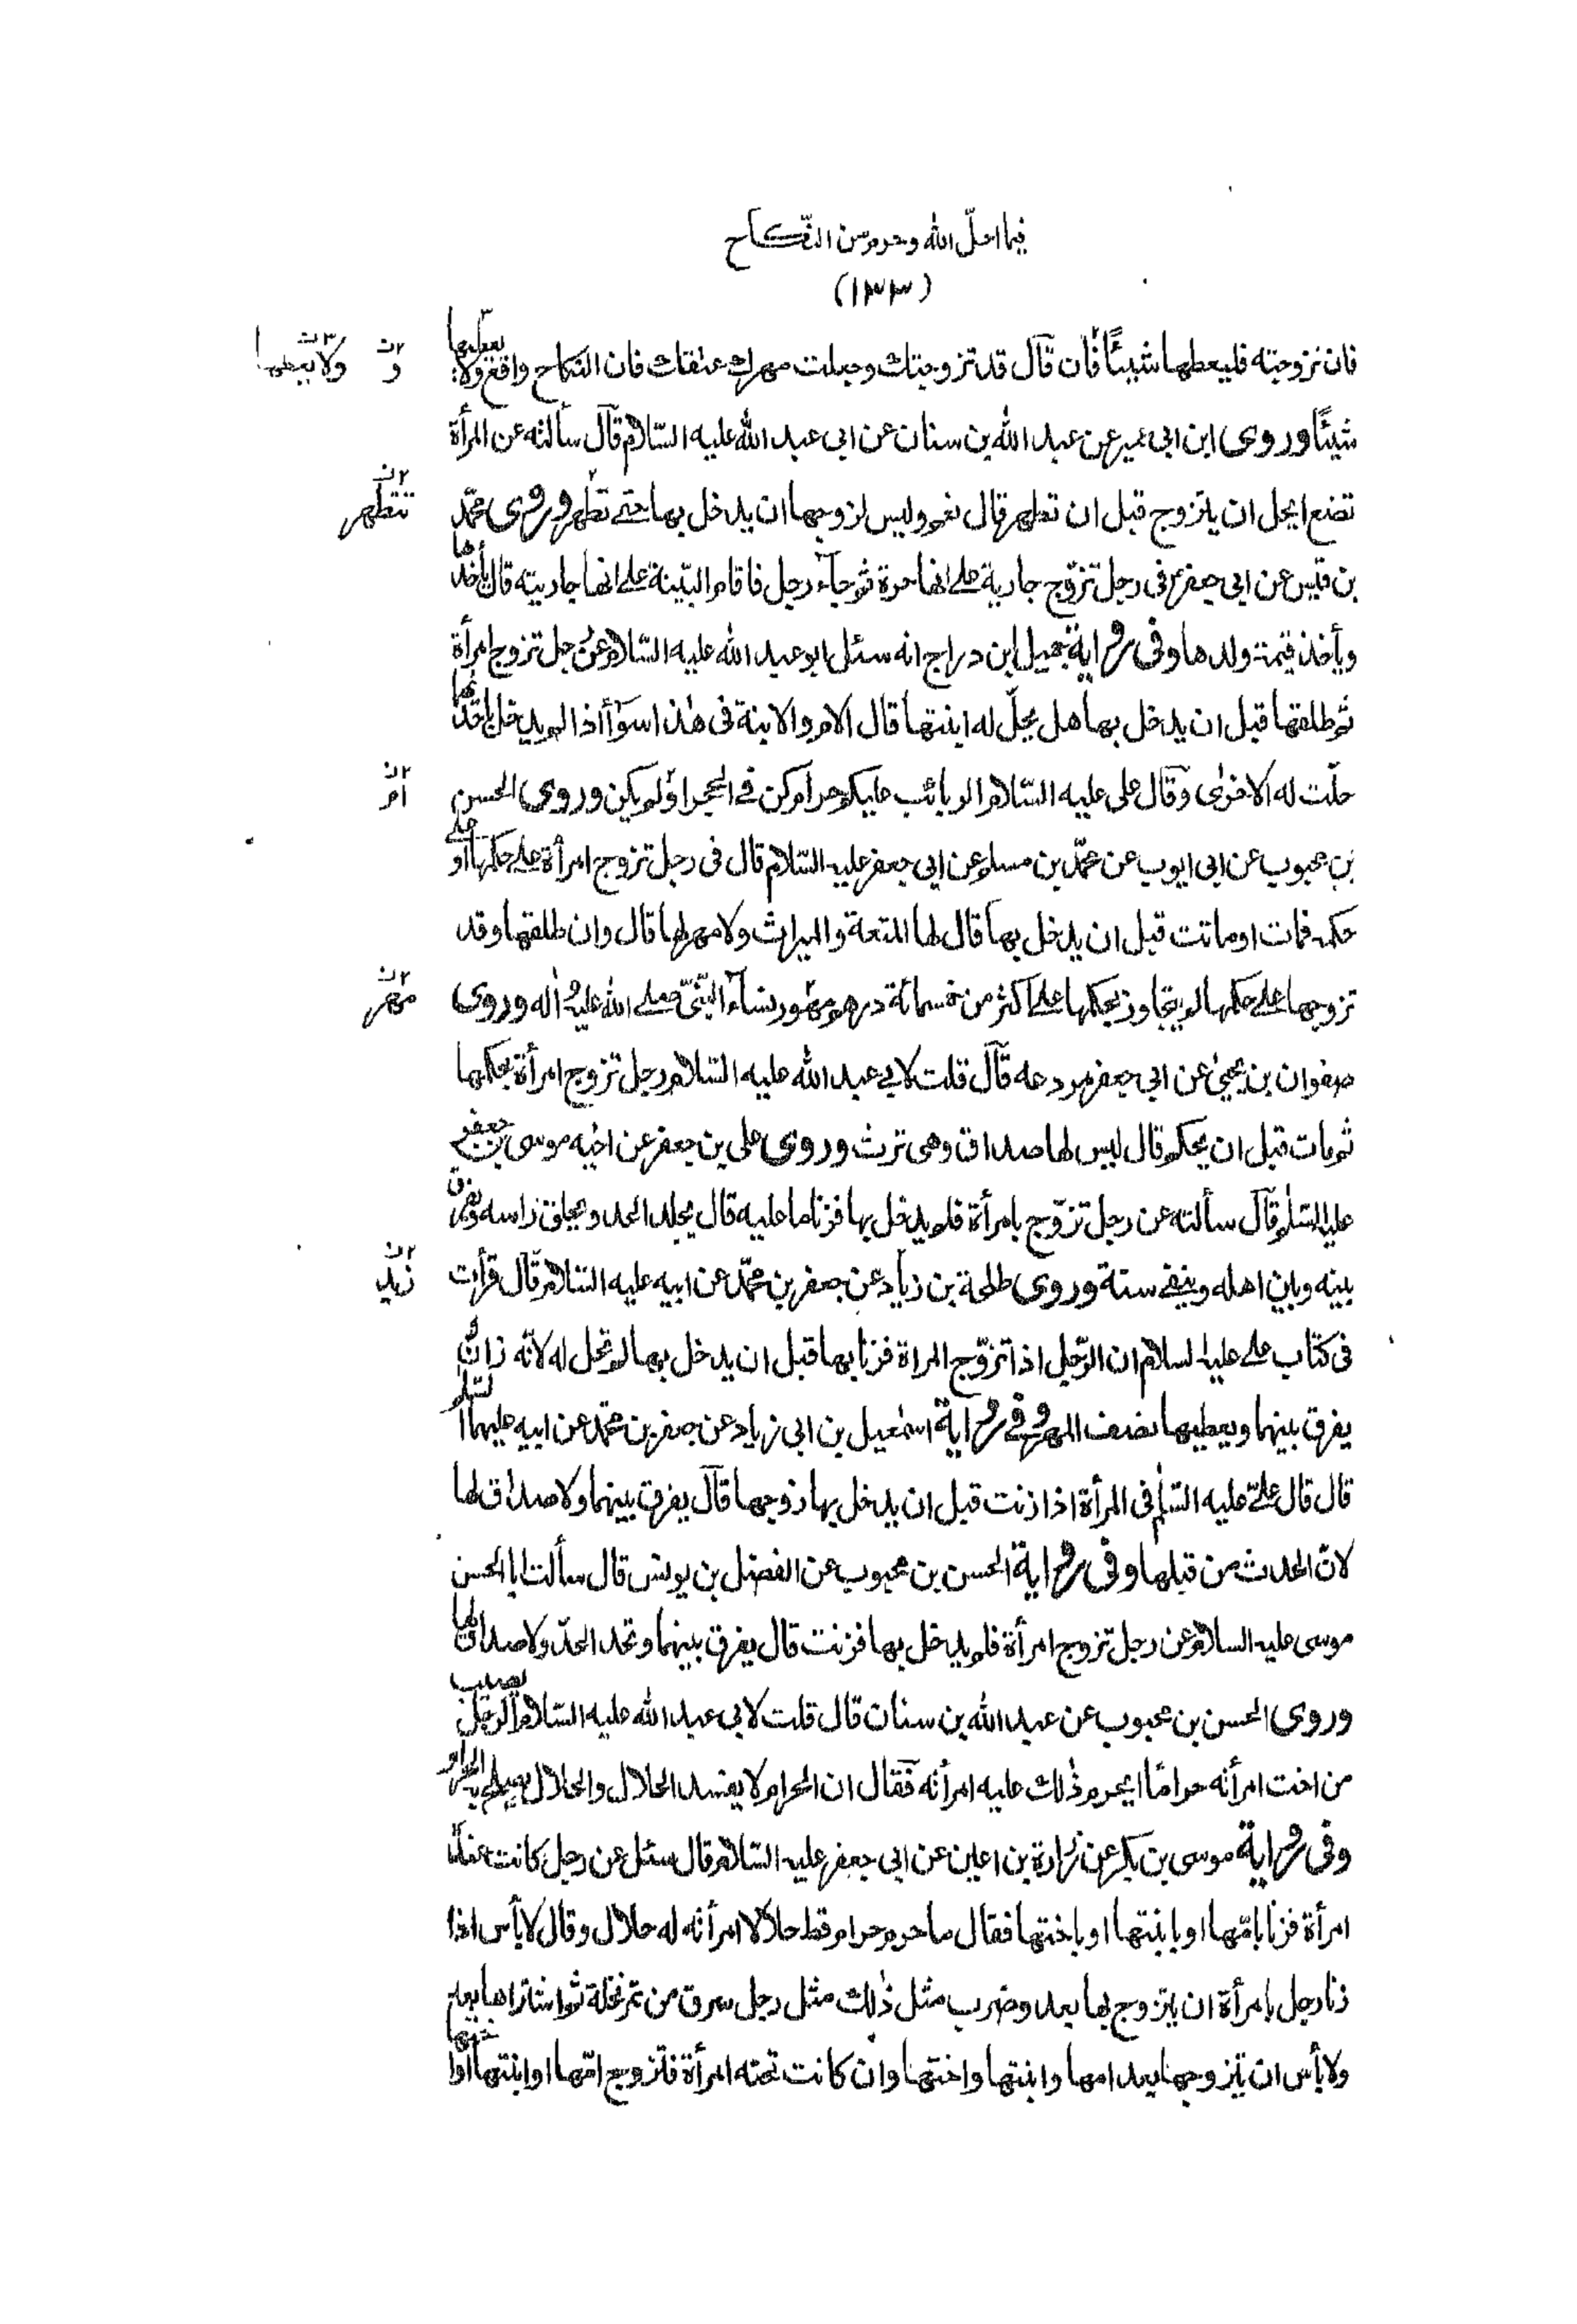 فيما احلّ الله وحرم من النّكاح
(١٣٣)
فان تزوجته فليعطها شيئًا فان قال قد تزوجتك وجعلت مهرك عتقك فان النكاح واقع ولا يعطيها
٢ن و
٣ن ولا يعطها
شيئًا وروى ابن ابى عمير عن عبد الله بن سنان عن ابى عبد الله عليه السّلام قال سألته عن المرأة
تضع ايحل ان يتزوج قبل ان تطهر قال نعم وليس لزوجها ان يدخل بها حتى تطهر وروى محمّد
٢ن تتطهر
بن قيس عن ابى جعفرؑ فى رجل تزوّج جارية على انها حرة ثم جاء رجل فاقام البيّنة على انها جاريته قال يأخذها
ويأخذ قيمة ولدها وفى رواية جميل ابن دراج انه سئل ابو عبد الله عليه السّلام عن رجل تزوج امرأة
ثم طلقها قبل ان يدخل بها هل يحلّ له ابنتها قال الام والابنة فى هذا سواء اذا لم يدخل باحدهما
حلّت له الاخرى وقال على عليه السّلام الربائب عليكم حرام كن فى الحجر او لم يكن وروى الحسن
٢ن ام
بن محبوب عن ابى ايوب عن محمّد بن مسلم عن ابى جعفر عليه السّلام قال فى رجل تزوج امرأة على حكمها او على
حكمه فمات او ماتت قبل ان يدخل بها قال لها المتعة والميراث ولا مهر لها قال وان طلقها وقد
تزوجها على حكمها لم يتجاوز بحكمها على اكثر من خمسمائة درهم مهور نساء النّبىّ صلى الله عليه واله وروى
٢ن مهر
صفوان بن يحيى عن ابى جعفر مردعه قال قلت لابى عبد الله عليه السّلام رجل تزوج امرأة بحكمها
ثم مات قبل ان يحكم قال ليس لها صداق وهى ترث وروى على بن جعفر عن اخيه موسى بن جعفر
عليه السّلم قال سألته عن رجل تزوّج بامرأة فلم يدخل بها فزنا ما عليه قال يجلد الحد ويحلق راسه ويفرق
بينه وبين اهله وينفى سنة وروى طلحة بن زياد عن جعفر بن محمّد عن ابيه عليه السّلام قال قرأت
٢ن زيد
فى كتاب على عليه السلام ان الرّجل اذا تزوّج المراة فزنا بها قبل ان يدخل بها لم تحل له لانّه زان
يفرق بينهما ويعطيها نصف المهر وفى رواية اسمٰعيل بن ابى زياد عن جعفر بن محمّد عن ابيه عليهما السّلم
قال قال علىّ عليه السّلم فى المرأة اذا زنت قبل ان يدخل بها زوجها قال يفرق بينهما ولا صداق لها
لانّ الحدث من قبلها وفى رواية الحسن بن محبوب عن الفضل بن يونس قال سألت ابا الحسن
موسى عليه السلام عن رجل تزوج امرأة فلم يدخل بها فزنت قال يفرق بينهما وتحد الحدّ ولا صداق لها
وروى الحسن بن محبوب عن عبد الله بن سنان قال قلت لابى عبد الله عليه السّلام الرجل يصيب
من اخت امرأته حرامًا ايحرم ذٰلك عليه امرأته فقال ان الحرام لا يفسد الحلال والحلال يصلح به الحرام
وفى رواية موسى بن بكر عن زرارة بن اعين عن ابى جعفر عليه السّلام قال سئل عن رجل كانت عنده
امرأة فزنا بامّها او بابنتها او باختها فقال ما حرم حرام قط حلالا امرأته له حلال وقال لا بأس اذا
زنا رجل بامرأة ان يتزوج بها بعد وضرب مثل ذٰلك مثل رجل سرق من تمر نخلة ثم اشتراها بعد
ولا بأس ان يتزوجها بعد امها وابنتها واختها وان كانت تحته امرأة فتزوج امّها او ابنتها او اختها